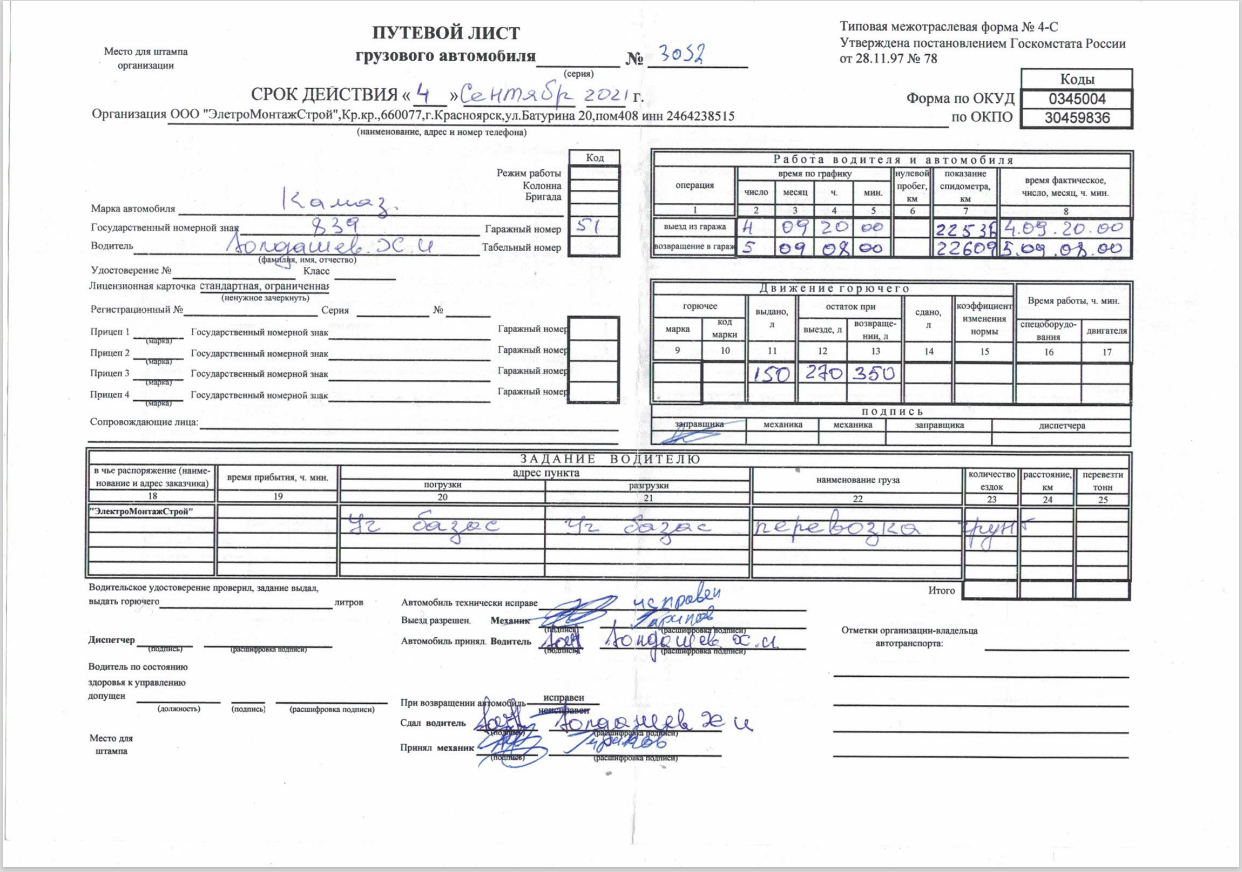 ПУТЕВОЙ ЛИСТ
грузового автомобиля № 3052
(серия)
Место для штампа
организации
Типовая межотраслевая форма № 4-С
Утверждена постановлением Госкомстата России
от 28.11.97 № 78
Коды
Форма по ОКУД 0345004
по ОКПО 30459836
СРОК ДЕЙСТВИЯ « 4 » Сентябр 2021 г.
Организация ООО "ЭлетроМонтажСтрой",Кр.кр.,660077,г.Красноярск,ул.Батурина 20,пом408 инн 2464238515
(наименование, адрес и номер телефона)
Код
Режим работы
Колонна
Бригада
Марка автомобиля Камаз.
Государственный номерной знак 839 Гаражный номер 51
Водитель Йолдашев.Х.И Табельный номер
(фамилия, имя, отчество)
Удостоверение № Класс
Лицензионная карточка стандартная, ограниченная
(ненужное зачеркнуть)
Регистрационный № Серия №
Прицеп 1 Государственный номерной знак Гаражный номер
(марка)
Прицеп 2 Государственный номерной знак Гаражный номер
(марка)
Прицеп 3 Государственный номерной знак Гаражный номер
(марка)
Прицеп 4 Государственный номерной знак Гаражный номер
(марка)
Сопровождающие лица:
Работа водителя и автомобиля
операция время по графику нулевой пробег, км показание спидометра, км время фактическое, число, месяц, ч. мин.
число месяц ч. мин.
1 2 3 4 5 6 7 8
выезд из гаража 4 09 20 00 22538 4.09.20.00
возвращение в гараж 5 09 08 00 22609 5.09.08.00
Движение горючего
горючее выдано, л остаток при сдано, л коэффициент изменения нормы Время работы, ч. мин.
марка код марки выезде, л возвраще-нии, л спецоборудо-вания двигателя
9 10 11 12 13 14 15 16 17
150 270 350
подпись
заправщика механика механика заправщика диспетчера
ЗАДАНИЕ ВОДИТЕЛЮ
в чье распоряжение (наиме-нование и адрес заказчика) время прибытия, ч. мин. адрес пункта наименование груза количество ездок расстояние, км перевезти тонн
погрузки разгрузки
18 19 20 21 22 23 24 25
"ЭлектроМонтажСтрой" Уг базас Уг базас перевозка грунт
Итого
Водительское удостоверение проверил, задание выдал,
выдать горючего литров
Диспетчер
(подпись) (расшифровка подписи)
Водитель по состоянию
здоровья к управлению
допущен
(должность) (подпись) (расшифровка подписи)
Место для
штампа
Автомобиль технически исправе исправен
Выезд разрешен. Механик
(подпись) (расшифровка подписи)
Автомобиль принял. Водитель Йолдашев Х.И
(подпись) (расшифровка подписи)
При возвращении автомобиль исправен
неисправен
Сдал водитель Йолдашев Х И
(подпись) (расшифровка подписи)
Принял механик
(подпись) (расшифровка подписи)
Отметки организации-владельца
автотранспорта: